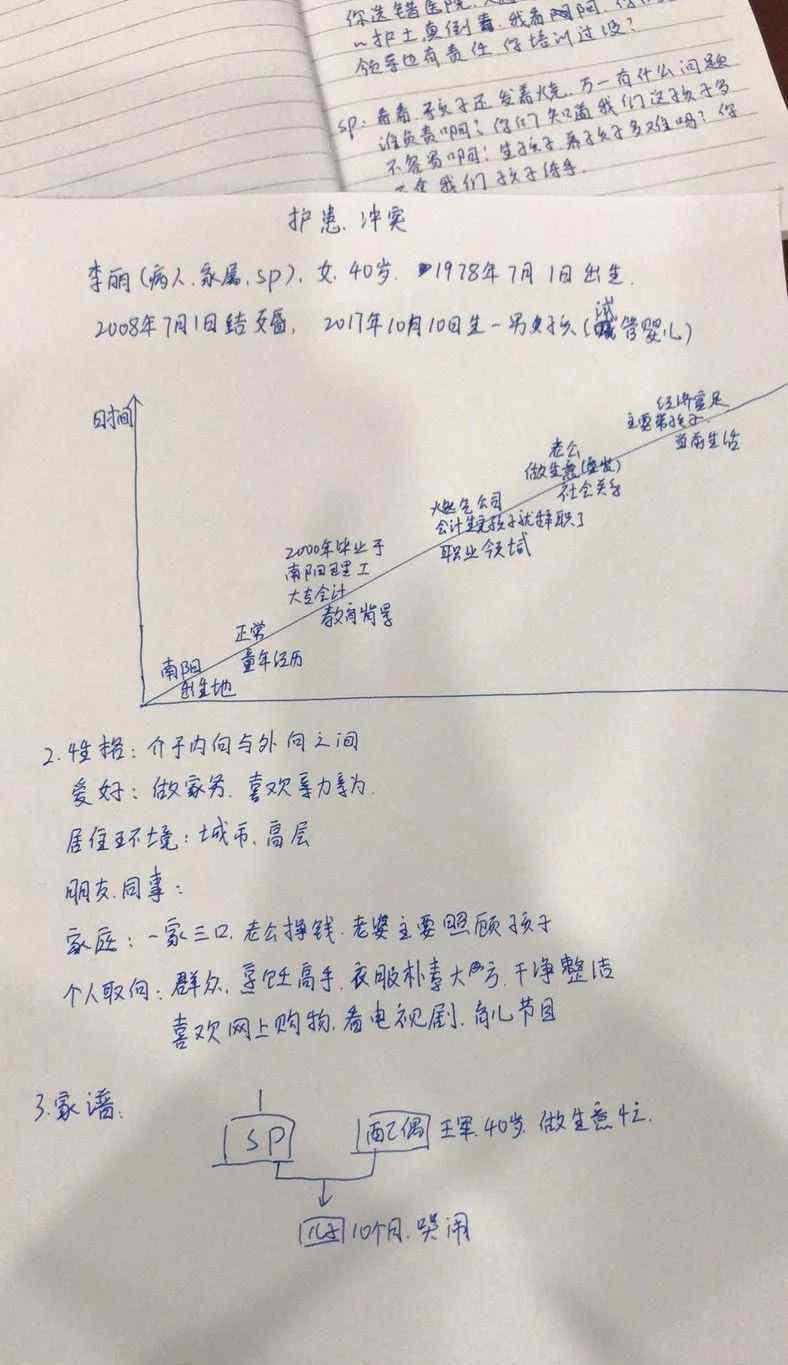 你选错医院
护士真倒霉.我看啊啊.
领导也有责任.你培训过没?
SP: 看看.孩子还发着烧.万一有什么问题
谁负责啊?你们知道我们这孩子多
不容易啊!生孩子.养孩子多难吗?你
我们孩子练手.
护患.冲突
李丽(病人.家属.SP).女.40岁. 1978年7月1日出生.
2008年7月1日结婚, 2017年10月10日生一男孩(试管婴儿)
时间
经济富足
主要带孩子
当前生活
老公
做生意
社会关系
燃气公司
会计生完孩子就辞职了
职业领域
2000年毕业于
南阳理工
大专会计
教育背景
正常
童年经历
南阳
出生地
2.性格:介于内向与外向之间
爱好:做家务.喜欢亲力亲为.
居住环境:城市.高层
朋友.同事:
家庭:一家三口.老公挣钱.老婆主要照顾孩子
个人取向:群众.烹饪高手.衣服朴素大方.干净整洁
喜欢网上购物.看电视剧.育儿节目
3.家谱:
SP 配偶 王军.40岁.做生意忙.
儿子 10个月.哭闹